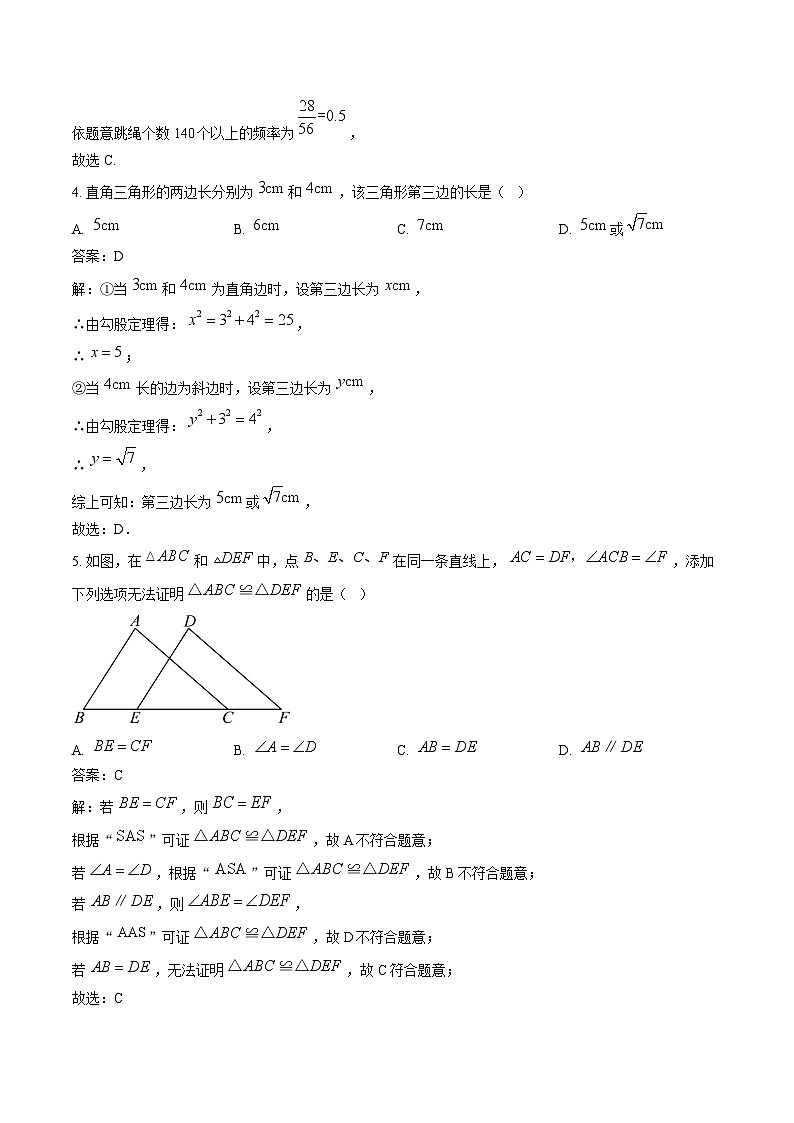 依题意跳绳个数 140 个以上的频率为 28/56=0.5，
故选 C.
4. 直角三角形的两边长分别为 3cm 和 4cm，该三角形第三边的长是（ ）
A. 5cm B. 6cm C. 7cm D. 5cm或√7cm
答案：D
解：①当 3cm 和 4cm 为直角边时，设第三边长为 xcm，
∴由勾股定理得：x²=3²+4²=25，
∴ x=5；
②当 4cm 长的边为斜边时，设第三边长为 ycm，
∴由勾股定理得：y²+3²=4²，
∴ y=√7，
综上可知：第三边长为 5cm 或 √7cm，
故选：D．
5. 如图，在 △ABC 和 △DEF 中，点 B、E、C、F 在同一条直线上， AC=DF，∠ACB=∠F，添加
下列选项无法证明 △ABC≌△DEF 的是（ ）
A D
B E C F
A. BE=CF B. ∠A=∠D C. AB=DE D. AB∥DE
答案：C
解：若 BE=CF，则 BC=EF，
根据“SAS”可证 △ABC≌△DEF，故 A 不符合题意；
若 ∠A=∠D，根据“ASA”可证 △ABC≌△DEF，故 B 不符合题意；
若 AB∥DE，则 ∠ABE=∠DEF，
根据“AAS”可证 △ABC≌△DEF，故 D 不符合题意；
若 AB=DE，无法证明 △ABC≌△DEF，故 C 符合题意；
故选：C